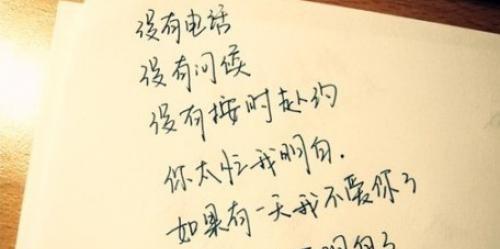 没有电话
没有问候
没有按时赴约
你太忙我明白.
如果有一天我不爱你了
明白了